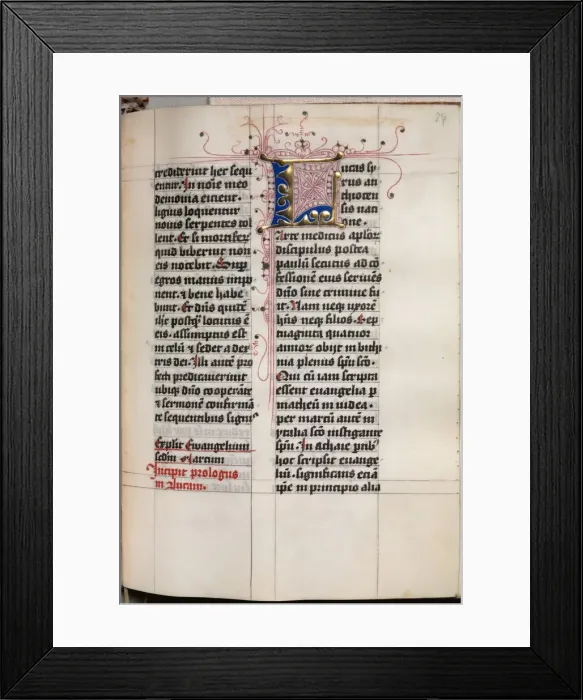 24
crediderint hec sequ
entur. In noīe meo
demonia eicient.
liguis loquentur
nouis serpentes tol
lent. Et si mortiferū
quid biberint non
eis nocebit. Sup
egros manus imp
nent. ⁊ bene habe
bunt. Et dn̄s quidē
ih̄c postq̄ locutus ē
eis. assumptus est
in celū ⁊ sedet a dex
tris dei. Illi autē pro
fecti predicauerunt
ubiq; dn̄o cooperāte
⁊ sermonē confirmā
te sequentibus signis
Explicit Ewangelium
scdm Marcum
Incipit prologus
in Lucam.
Lucas sy
rus an
thiocen
sis nati
one.
Arte medicus apl̄oꝝ
discipulus postea
paulū secutus ad cō
fessionē eius seruiēs
dn̄o sine crimine fu
it. Nam neq; uxorē
hn̄s neq; filios. Sep
tuaginta quatuor
annoꝝ obijt in bithi
nia plenus sp̄u scō.
Qui cū iam scripta
essent euangelia p
matheū in iudea.
per marcū autē in
ytalia scō instigante
sp̄u. In achaie ptib;
hoc scripsit euange
liū. significans etiā
ip̄e in principio alia